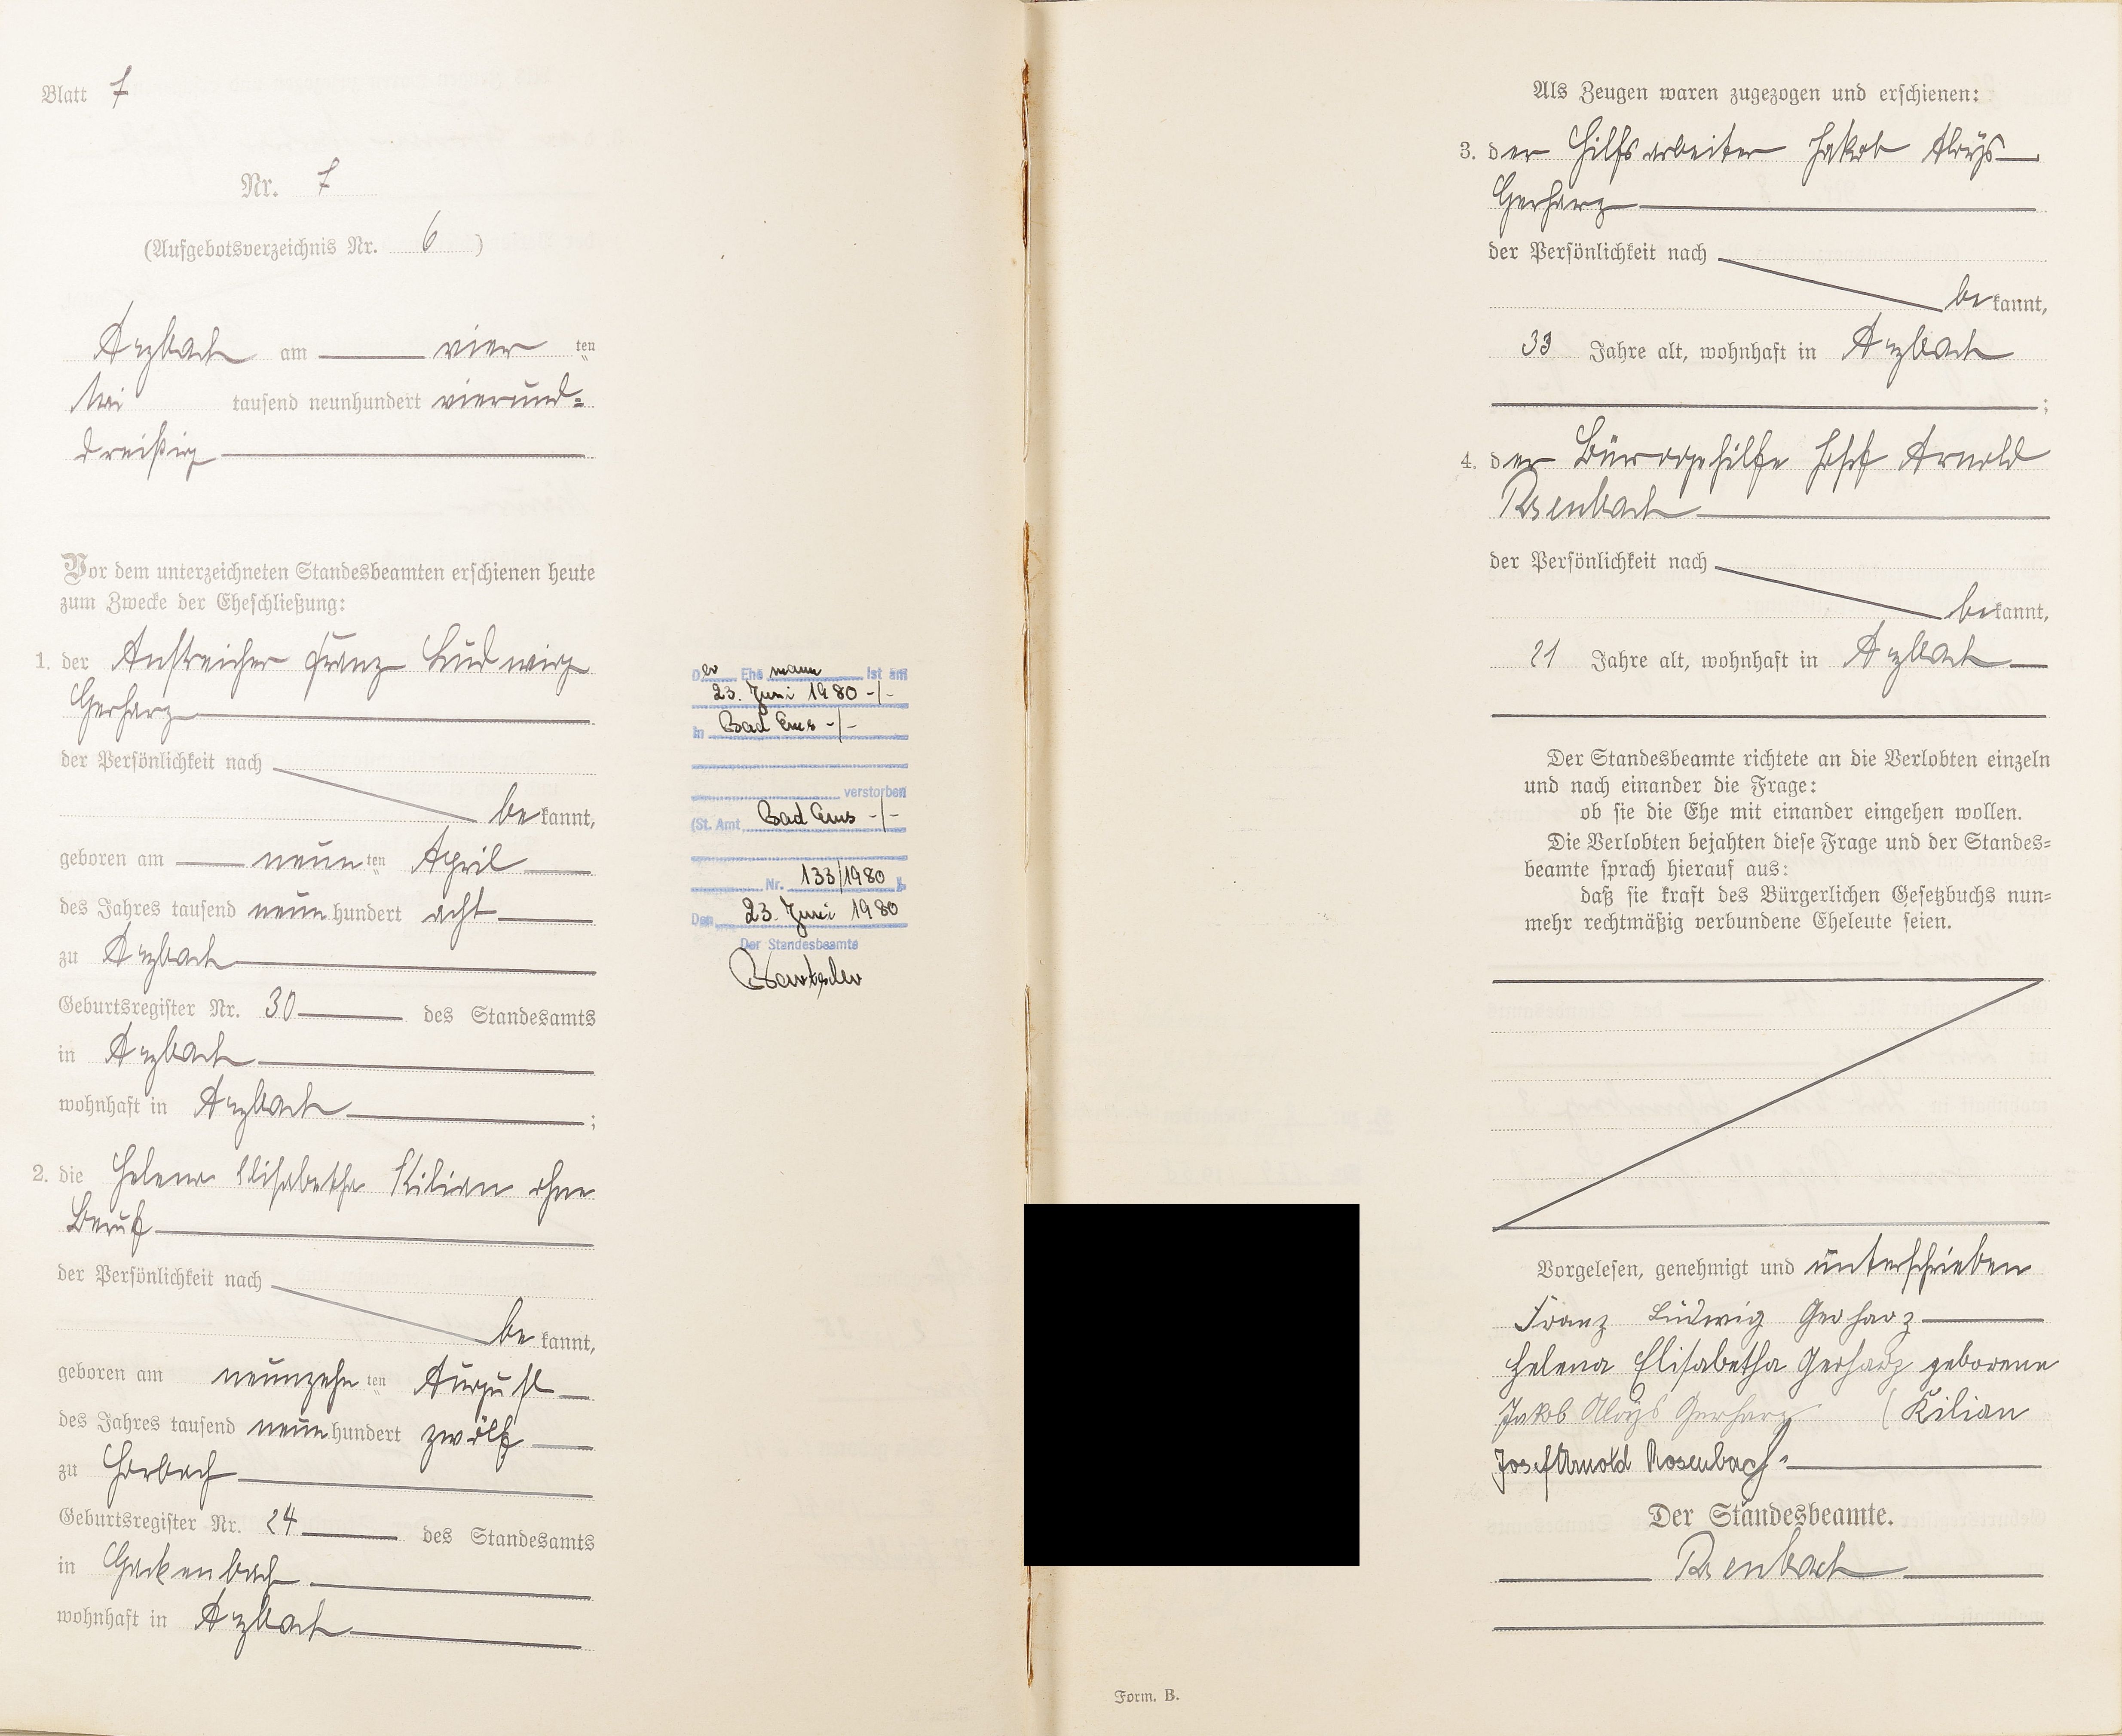 Blatt 7
Nr. 7
(Aufgebotsverzeichnis Nr. 6)
Arzbach am vier ten
Mai tausend neunhundert vierund=
dreißig
Vor dem unterzeichneten Standesbeamten erschienen heute
zum Zwecke der Eheschließung:
1. der Anstreicher Franz Ludwig
Gerharz
der Persönlichkeit nach
be kannt,
geboren am neun ten April
des Jahres tausend neun hundert acht
zu Arzbach
Geburtsregister Nr. 30 des Standesamts
in Arzbach
wohnhaft in Arzbach ;
2. die Helena Elisabetha Kilian ohne
Beruf
der Persönlichkeit nach
be kannt,
geboren am neunzehn ten August
des Jahres tausend neun hundert zwölf
zu Horbach
Geburtsregister Nr. 24 des Standesamts
in Gackenbach
wohnhaft in Arzbach
Der Ehemann ist am
23. Juni 1980 -/-
in Bad Ems -/-
verstorben
(St. Amt Bad Ems -/-
Nr. 133/1980 ).
Den 23. Juni 1980
Der Standesbeamte
Als Zeugen waren zugezogen und erschienen:
3. der Hilfsarbeiter Jakob Aloÿs
Gerharz
der Persönlichkeit nach
be kannt,
33 Jahre alt, wohnhaft in Arzbach
;
4. der Bürogehilfe Josef Arnold
Rosenbach
der Persönlichkeit nach
be kannt,
21 Jahre alt, wohnhaft in Arzbach
Der Standesbeamte richtete an die Verlobten einzeln
und nach einander die Frage:
ob sie die Ehe mit einander eingehen wollen.
Die Verlobten bejahten diese Frage und der Standes=
beamte sprach hierauf aus:
daß sie kraft des Bürgerlichen Gesetzbuchs nun=
mehr rechtmäßig verbundene Eheleute seien.
Vorgelesen, genehmigt und unterschrieben
Franz Ludwig Gerharz
Helena Elisabetha Gerharz geborene
Jakob Aloÿs Gerharz (Kilian
Josef Arnold Rosenbach
Der Standesbeamte.
Rosenbach
Form. B.